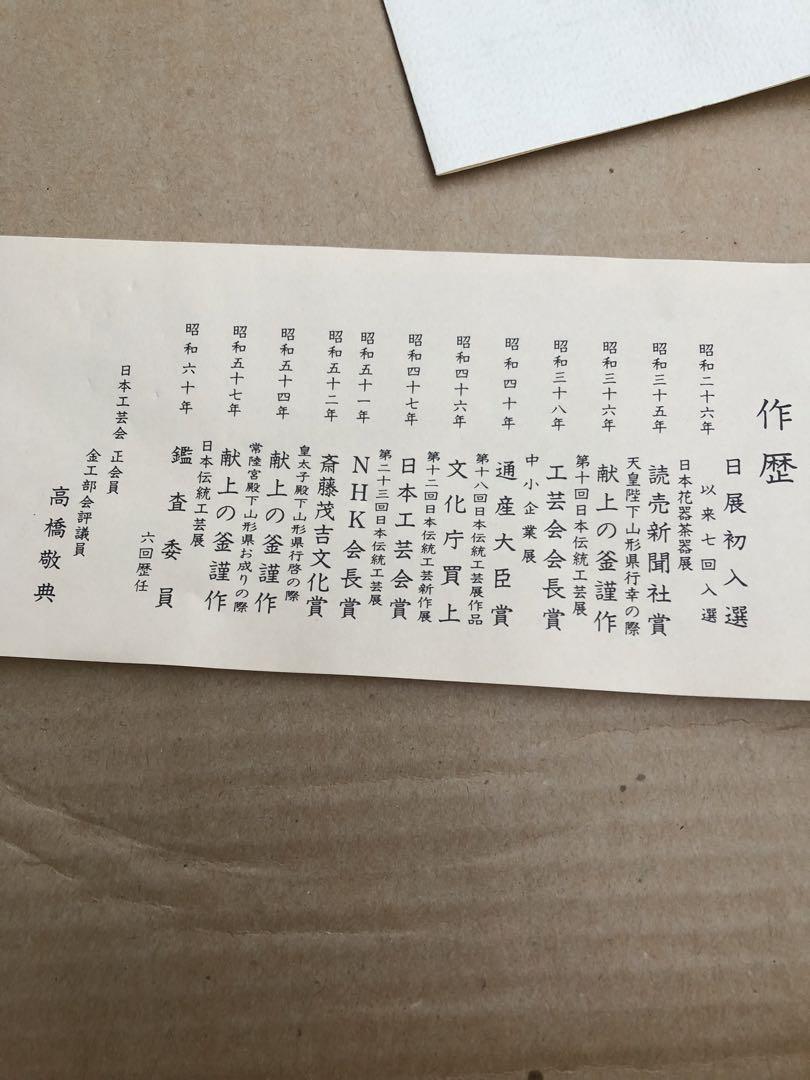 作歴
昭和二十六年 日展初入選
以来七回入選
日本花器茶器展
昭和三十五年 読売新聞社賞
天皇陛下山形県行幸の際
昭和三十六年 献上の釜謹作
第十回日本伝統工芸展
昭和三十八年 工芸会会長賞
中小企業展
昭和四十年 通産大臣賞
第十八回日本伝統工芸展作品
昭和四十六年 文化庁買上
第十二回日本伝統工芸新作展
昭和四十七年 日本工芸会賞
第二十三回日本伝統工芸展
昭和五十一年 NHK会長賞
昭和五十二年 斎藤茂吉文化賞
皇太子殿下山形県行啓の際
昭和五十四年 献上の釜謹作
常陸宮殿下山形県お成りの際
昭和五十七年 献上の釜謹作
日本伝統工芸展
昭和六十年 鑑査委員
六回歴任
日本工芸会 正会員
金工部会評議員
高橋敬典